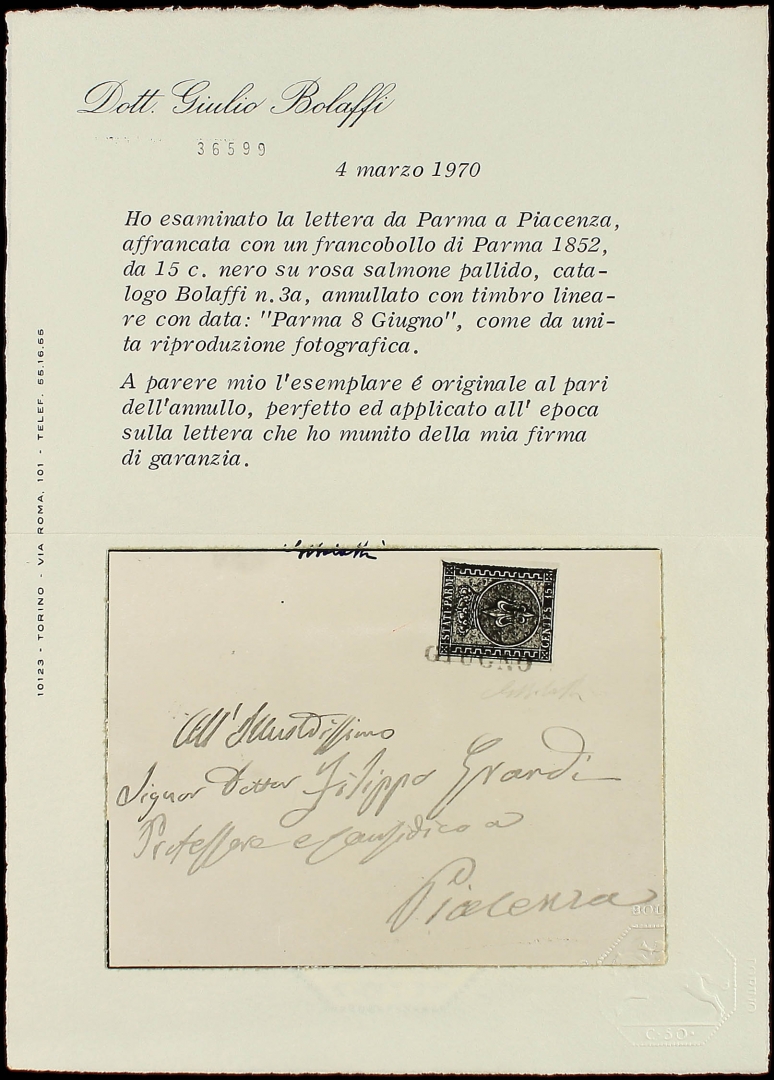 Dott. Giulio Bolaffi
36599
4 marzo 1970
Ho esaminato la lettera da Parma a Piacenza,
affrancata con un francobollo di Parma 1852,
da 15 c. nero su rosa salmone pallido, cata-
logo Bolaffi n.3a, annullato con timbro linea-
re con data: "Parma 8 Giugno", come da uni-
ta riproduzione fotografica.
A parere mio l'esemplare é originale al pari
dell'annullo, perfetto ed applicato all' epoca
sulla lettera che ho munito della mia firma
di garanzia.
10123 - TORINO - VIA ROMA, 101 - TELEF. 55.16.55
STATI PARM
CENTES. 15
GIUGNO
All' Illustrissimo
Signor Dottor Filippo Grandi
Professore e Causidico a
Piacenza